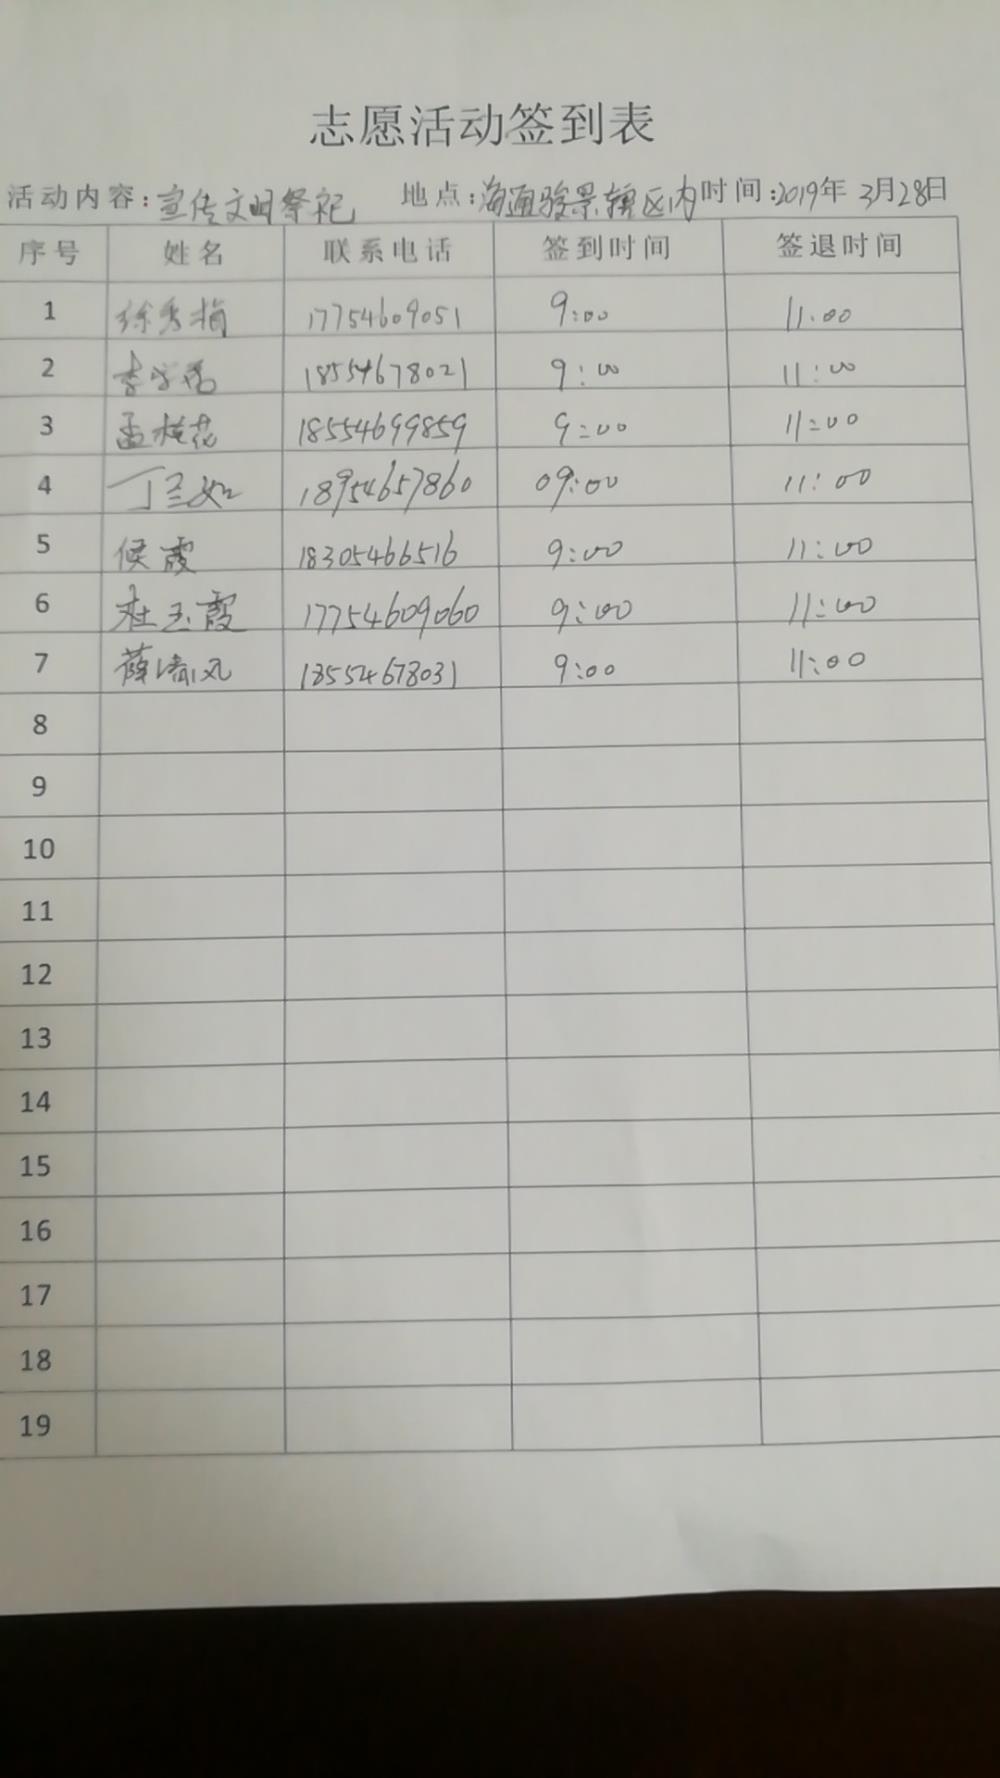 志愿活动签到表
活动内容:宣传文明祭祀 地点:海通骏景辖区内 时间:2019年3月28日
序号 姓名 联系电话 签到时间 签退时间
1 徐秀梅 17754609051 9:00 11:00
2 李 18554678021 9:00 11:00
3 孟桂花 18554699859 9:00 11:00
4 丁兰如 18954657860 09:00 11:00
5 侯霞 18305466516 9:00 11:00
6 杜玉霞 17754609060 9:00 11:00
7 薛清风 18554678031 9:00 11:00
8
9
10
11
12
13
14
15
16
17
18
19